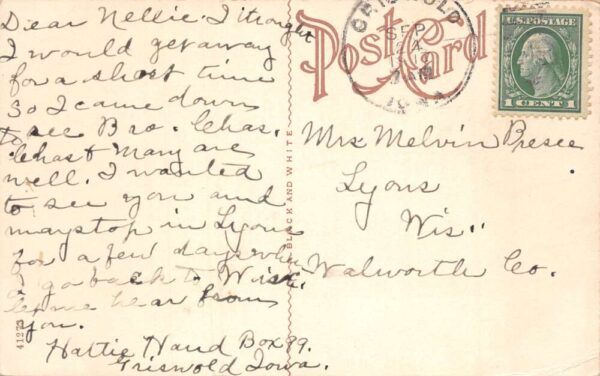 Dear Nellie. I thought
I would get away
for a short time
so I came down
to see Bro. Chas.
Chas & Mary are
well. I wanted
to see you and
may stop in Lyons
for a few days when
I go back to Wisc.
Let me hear from
you.
Hattie Hand Box 99.
Griswold Iowa.
41273
BLACK AND WHITE
Post Card
GRISWOLD
SEP
24
AM
IOWA
U.S. POSTAGE
1 CENT 1
Mrs Melvin Besee
Lyons
Wis..
Walworth Co.